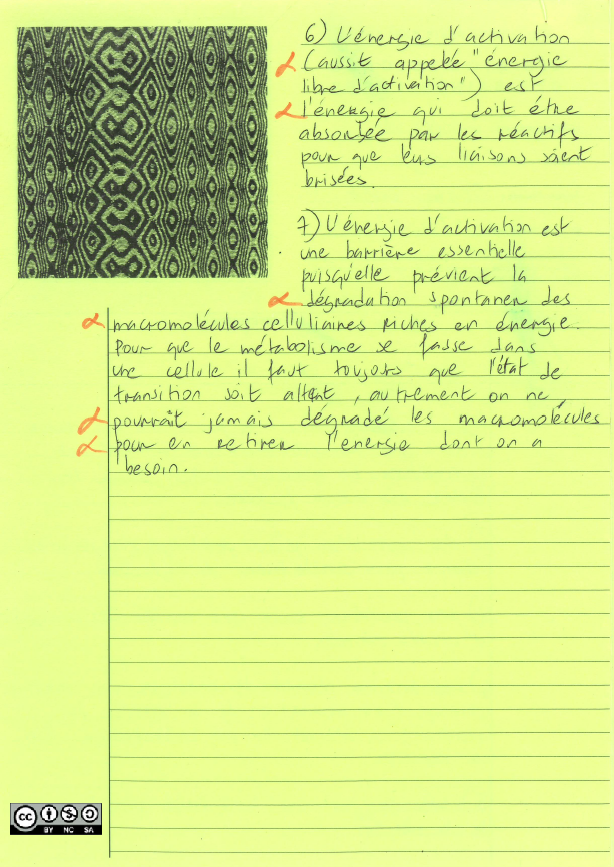 6) L'énergie d'activation
(aussit appelée "énergie
libre d'activation") est
l'énergie qui doit étre
absorbée par les réactifs
pour que leurs liaisons soient
brisées.
7) L'énergie d'activation est
une barrière essentielle
puisqu'elle prévient la
dégradation spontaner des
macromolécules celluliaires riches en énergie.
Pour que le métabolisme se fasse dans
une cellule il faut toujours que l'état de
transition soit attent, autrement on ne
pourrait jamais dégradé les macromolécules
pour en retirer l'énergie dont on a
besoin.
cc BY NC SA